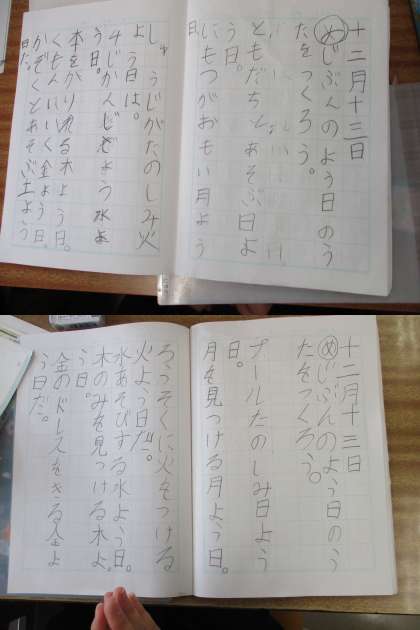 十二月十三日
めじぶんのよう日のう
たをつくろう。
ともだちとあそぶ日よ
う日。
にもつがおもい月よう
日。
しゅうじがたのしみ火
よう日は。
4じかんじぎょう水よ
う日。
本をかりれる木よう日。
くもんいく金よう日。
かぞくとあそぶ土よう
日だ。
十二月十三日
めじぶんのよう日のう
たをつくろう。
プールたのしみ日よう
日。
月を見つける月よう日。
ろうそくに火をつける
火よう日だ。
水あそびする水よう日。
木のみを見つける木よ
う日。
金のドレスをきる金よ
う日だ。